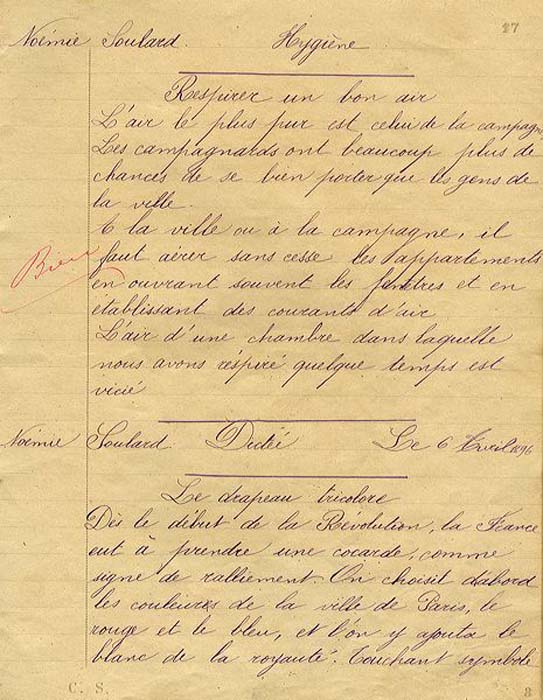 17
Noémie Soulard. Hygiène
Respirer un bon air
L'air le plus pur est celui de la campagne
Les campagnards ont beaucoup plus de
chances de se bien porter que les gens de
la ville.
A la ville ou à la campagne, il
faut aérer sans cesse les appartements
en ouvrant souvent les fenêtres et en
établissant des courants d'air
L'air d'une chambre dans laquelle
nous avons réspiré quelque temps est
vicié
Bien
Noémie Soulard. Dictée Le 6 Avril 1896
Le drapeau tricolore
Dès le début de la Révolution, la France
eut à prendre une cocarde, comme
signe de ralliement. On choisit d'abord
les couleurs de la ville de Paris, le
rouge et le bleu, et l'on y ajouta le
blanc de la royauté. Touchant symbole
C. S.
8